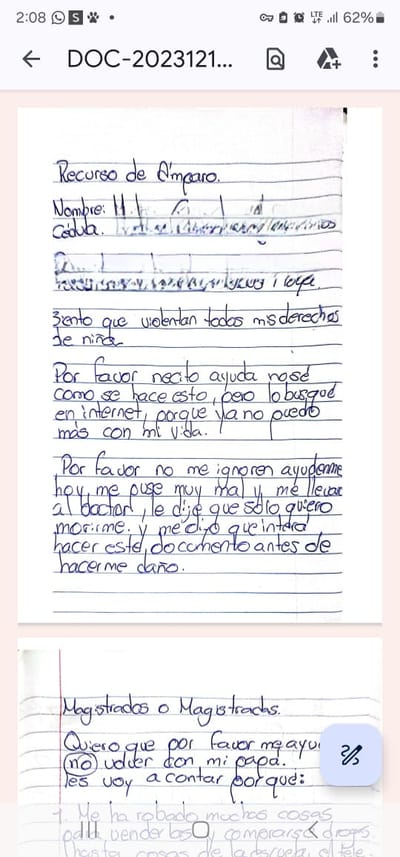 2:08 S LTE 62%
DOC-2023121...
Recurso de Amparo.
Nombre:
Cédula.
Siento que violentan todos mis derechos
de niña
Por favor necito ayuda no sé
como se hace esto, pero lo busqué
en internet, porque ya no puedo
más con mi vida.
Por favor no me ignoren ayudenme
hoy me puse muy mal y me llevar
al doctor, le dije que sólo quiero
morirme. y me dijo que intera
hacer este documento antes de
hacerme daño.
Magistrados o Magistradas.
Quiero que por favor me ayu
no volver con mi papá.
les voy a contar por que:
1. Me ha robado muchas cosas
para venderlas y comprarse drogas
hasta cosas de la escuela, el tele